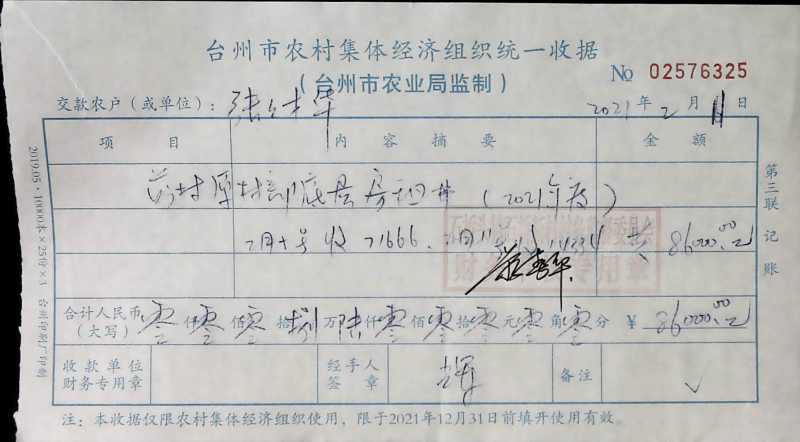 台州市农村集体经济组织统一收据
(台州市农业局监制)
No 02576325
交款农户(或单位): 张 华 2021年2月11日
项目 内容摘要 金额
村原村部底层房租 (2021年度)
2月十号收71666.2月11号 14334 共 86000.00元
财 专用章
合计人民币(大写) 零仟零佰零拾捌万陆仟零佰零拾零元零角零分 ¥ 86000.00元
收款单位财务专用章 经手人签章 备注 ✓
注:本收据仅限农村集体经济组织使用,限于2021年12月31日前填开使用有效。
第三联 记账
2019.05·10000本×25份×3 台州印刷厂印制